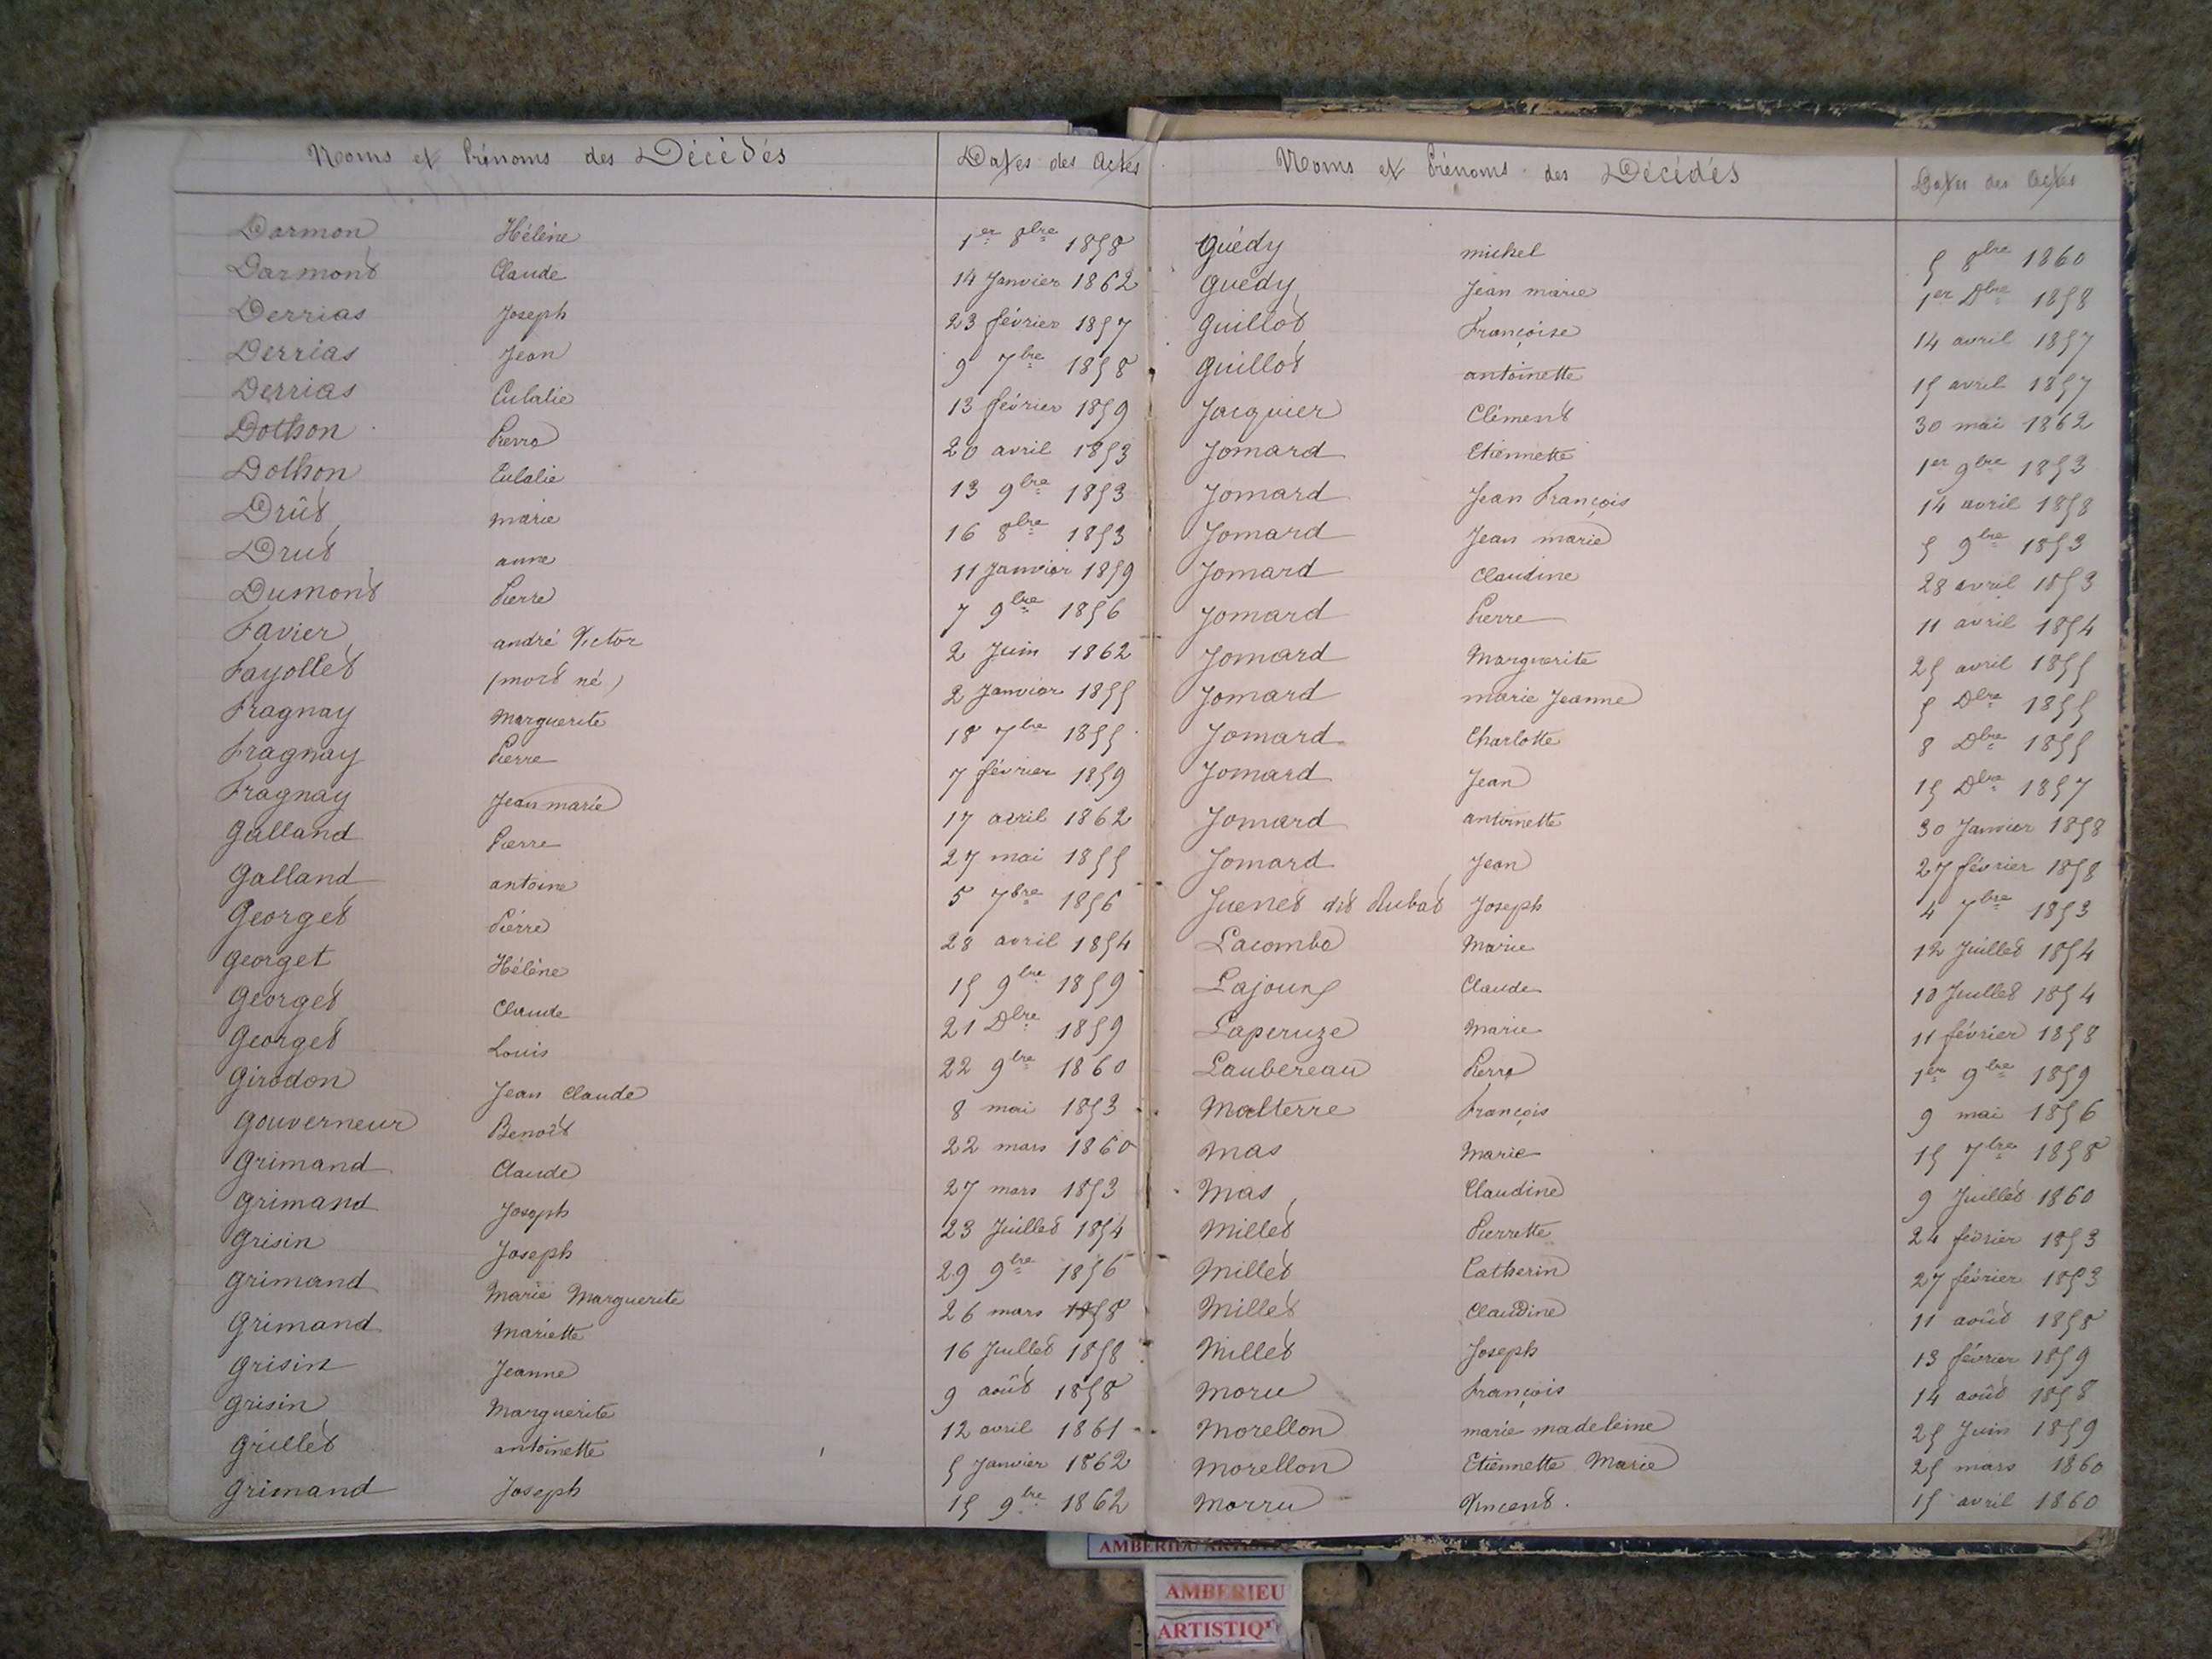 Noms et Prénoms des Décédés Dates des Actes
Darmon Hélène 1er 8bre 1858
Darmont Claude 14 Janvier 1862
Derrias Joseph 23 février 1857
Derrias Jean 9 7bre 1858
Derrias Eulalie 13 février 1859
Dothon Pierre 20 avril 1853
Dothon Eulalie 13 9bre 1853
Drût marie 16 8bre 1853
Drut anne 11 Janvier 1859
Dumont Pierre 7 9bre 1856
Favier andré Victor 2 Juin 1862
Fayollet (mort né) 2 Janvier 1855
Fragnay Marguerite 18 7bre 1855
Fragnay Pierre 7 février 1859
Fragnay Jean marie 17 avril 1862
Galland Pierre 27 mai 1855
Galland antoine 5 7bre 1856
Georget Pierre 28 avril 1854
Georget Hélène 15 9bre 1859
Georget Claude 21 Dbre 1859
Georget Louis 22 9bre 1860
Girodon Jean Claude 8 mai 1853
Gouverneur Benoît 22 mars 1860
Grimand Claude 27 mars 1853
Grimand Joseph 23 Juillet 1854
Grisin Joseph 29 9bre 1856
Grimand Marie Marguerite 26 mars 1858
Grimand Mariette 16 Juillet 1858
Grisin Jeanne 9 août 1858
Grisin Marguerite 12 avril 1861
Grillet antoinette 5 Janvier 1862
Grimand Joseph 15 9bre 1862
Noms et Prénoms des Décédés Dates des Actes
Guédy michel 5 8bre 1860
Guédy Jean marie 1er Dbre 1858
Guillot Françoise 14 avril 1857
Guillot antoinette 15 avril 1857
Jacquier Clément 30 mai 1862
Jomard Etiennette 1er 9bre 1853
Jomard Jean François 14 avril 1858
Jomard Jean marie 5 9bre 1853
Jomard Claudine 28 avril 1853
Jomard Pierre 11 avril 1854
Jomard Marguerite 25 avril 1855
Jomard marie Jeanne 5 Dbre 1855
Jomard Charlotte 8 Dbre 1855
Jomard Jean 15 Dbre 1857
Jomard antoinette 30 Janvier 1858
Jomard Jean 27 février 1858
Juenet dit Dubat Joseph 4 7bre 1853
Lacombe Marie 12 Juillet 1854
Lajoung Claude 10 Juillet 1854
Laperuze Marie 11 février 1858
Laubereau Pierre 1er 9bre 1859
Malterre François 9 mai 1856
Mas Marie 15 7bre 1858
Mas Claudine 9 Juillet 1860
Millet Pierrette 24 février 1853
Millet Catherin 27 février 1853
Millet Claudine 11 août 1858
Millet Joseph 13 février 1859
Moru François 14 août 1858
Morellon marie madeleine 25 Juin 1859
Morellon Etiennette Marie 25 mars 1860
Morru Vincent. 15 avril 1860
AMBERIEU
AMBERIEU